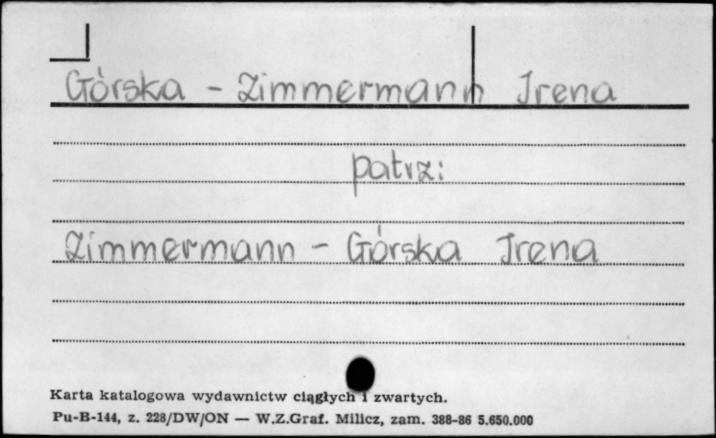 Górska - Zimmermann Irena
patrz:
Zimmermann - Górska Irena
Karta katalogowa wydawnictw ciągłych i zwartych.
Pu-B-144, z. 228/DW/ON — W.Z.Graf. Milicz, zam. 388-86 5.650.000